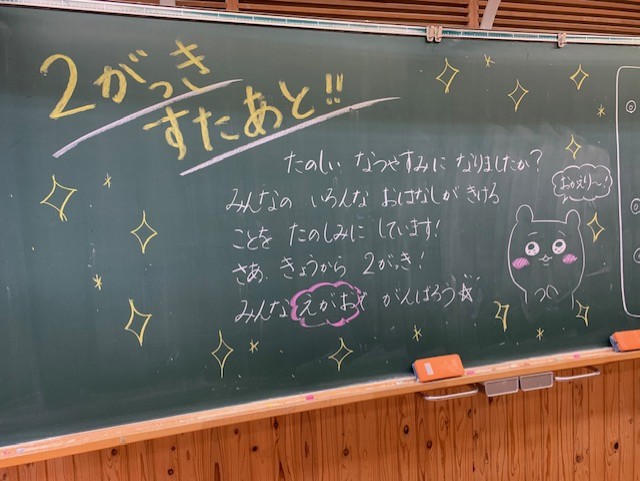 2がっき
すたあと!!
たのしい なつやすみに なりましたか?
みんなの いろんな おはなしが きける
ことを たのしみに しています!
さあ、きょうから 2がっき!
みんな えがおで がんばろう☆
おかえり〜!